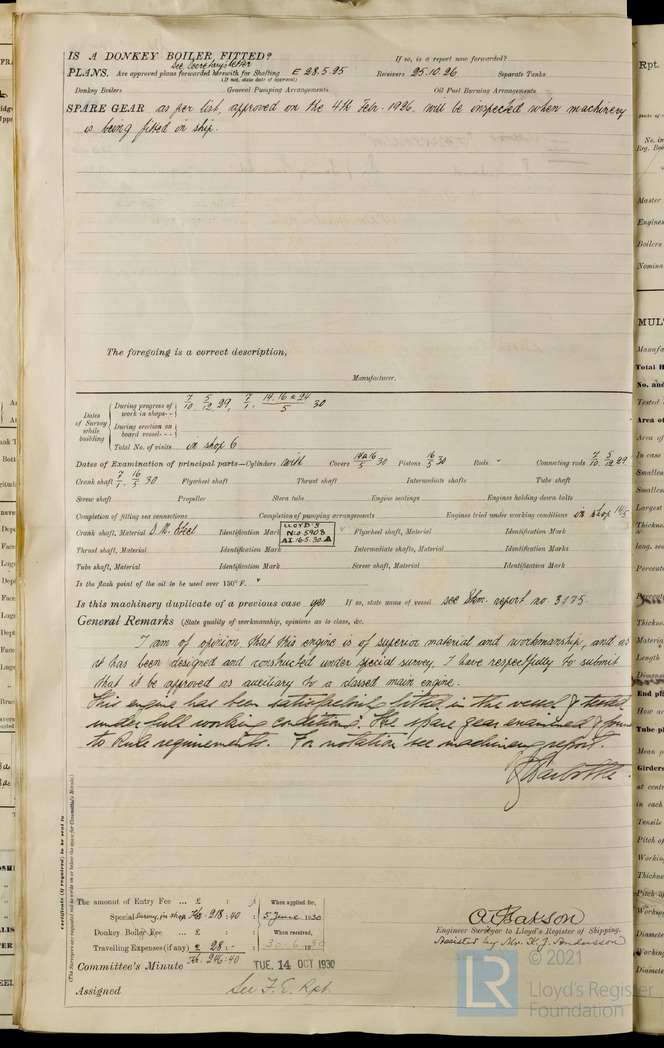 IS A DONKEY BOILER FITTED?
If so, is a report now forwarded?
see Secretary's letter
PLANS. Are approved plans forwarded herewith for Shafting E 28.5.25 Receivers 25.10.26 Separate Tanks
(If not, state date of approval)
Donkey Boilers General Pumping Arrangements Oil Fuel Burning Arrangements
SPARE GEAR as per list, approved on the 4th Febr. 1926. will be inspected when machinery
is being fitted in ship.
The foregoing is a correct description,
Manufacturer.
Dates of Survey while building
During progress of work in shops-- 7/10 5/12 29, 7/1. 14.16 & 24/5 30
During erection on board vessel---
Total No. of visits in shop 6
Dates of Examination of principal parts—Cylinders with Covers 14&16/5 30 Pistons 16/5 30 Rods - Connecting rods 7/10. 5/12 29
Crank shaft 7/1. 16/5 30 Flywheel shaft Thrust shaft Intermediate shafts Tube shaft
Screw shaft Propeller Stern tube Engine seatings Engines holding down bolts
Completion of fitting sea connections Completion of pumping arrangements Engines tried under working conditions in shop 14/5
Crank shaft, Material S.M. Steel Identification Mark LLOYD'S No 5908 AI 16.5.30 A Flywheel shaft, Material Identification Mark
Thrust shaft, Material Identification Mark Intermediate shafts, Material Identification Marks
Tube shaft, Material Identification Mark Screw shaft, Material Identification Mark
Is the flash point of the oil to be used over 150° F.
Is this machinery duplicate of a previous case yes If so, state name of vessel see Skm. report no. 3175.
General Remarks (State quality of workmanship, opinions as to class, &c.
I am of opinion, that this engine is of superior material and workmanship, and as
it has been designed and constructed under special survey, I have respectfully to submit
that it be approved as auxiliary to a classed main engine.
This engine has been satisfactorily fitted in the vessel & tested
under full working conditions. The spare gear examined & found
to Rule requirements. For notation see machinery report.
Certificate (if required) to be sent to
(The Surveyors are requested not to write on or below the space for Committee's Minute.)
The amount of Entry Fee ... £ : : When applied for,
Special Survey, in shop Kr. 218:40 : 5 June 1930
Donkey Boiler Fee ... £ : : When received,
Travelling Expenses (if any) £ 28:- : 30.6.1930
Kr. 246:40
Engineer Surveyor to Lloyd's Register of Shipping.
Assisted by Mr. K. J. Andersson
Committee's Minute TUE. 14 OCT 1930
Assigned See F.E. Rpt.
LR
© 2021
Lloyd's Register
Foundation
Rpt.